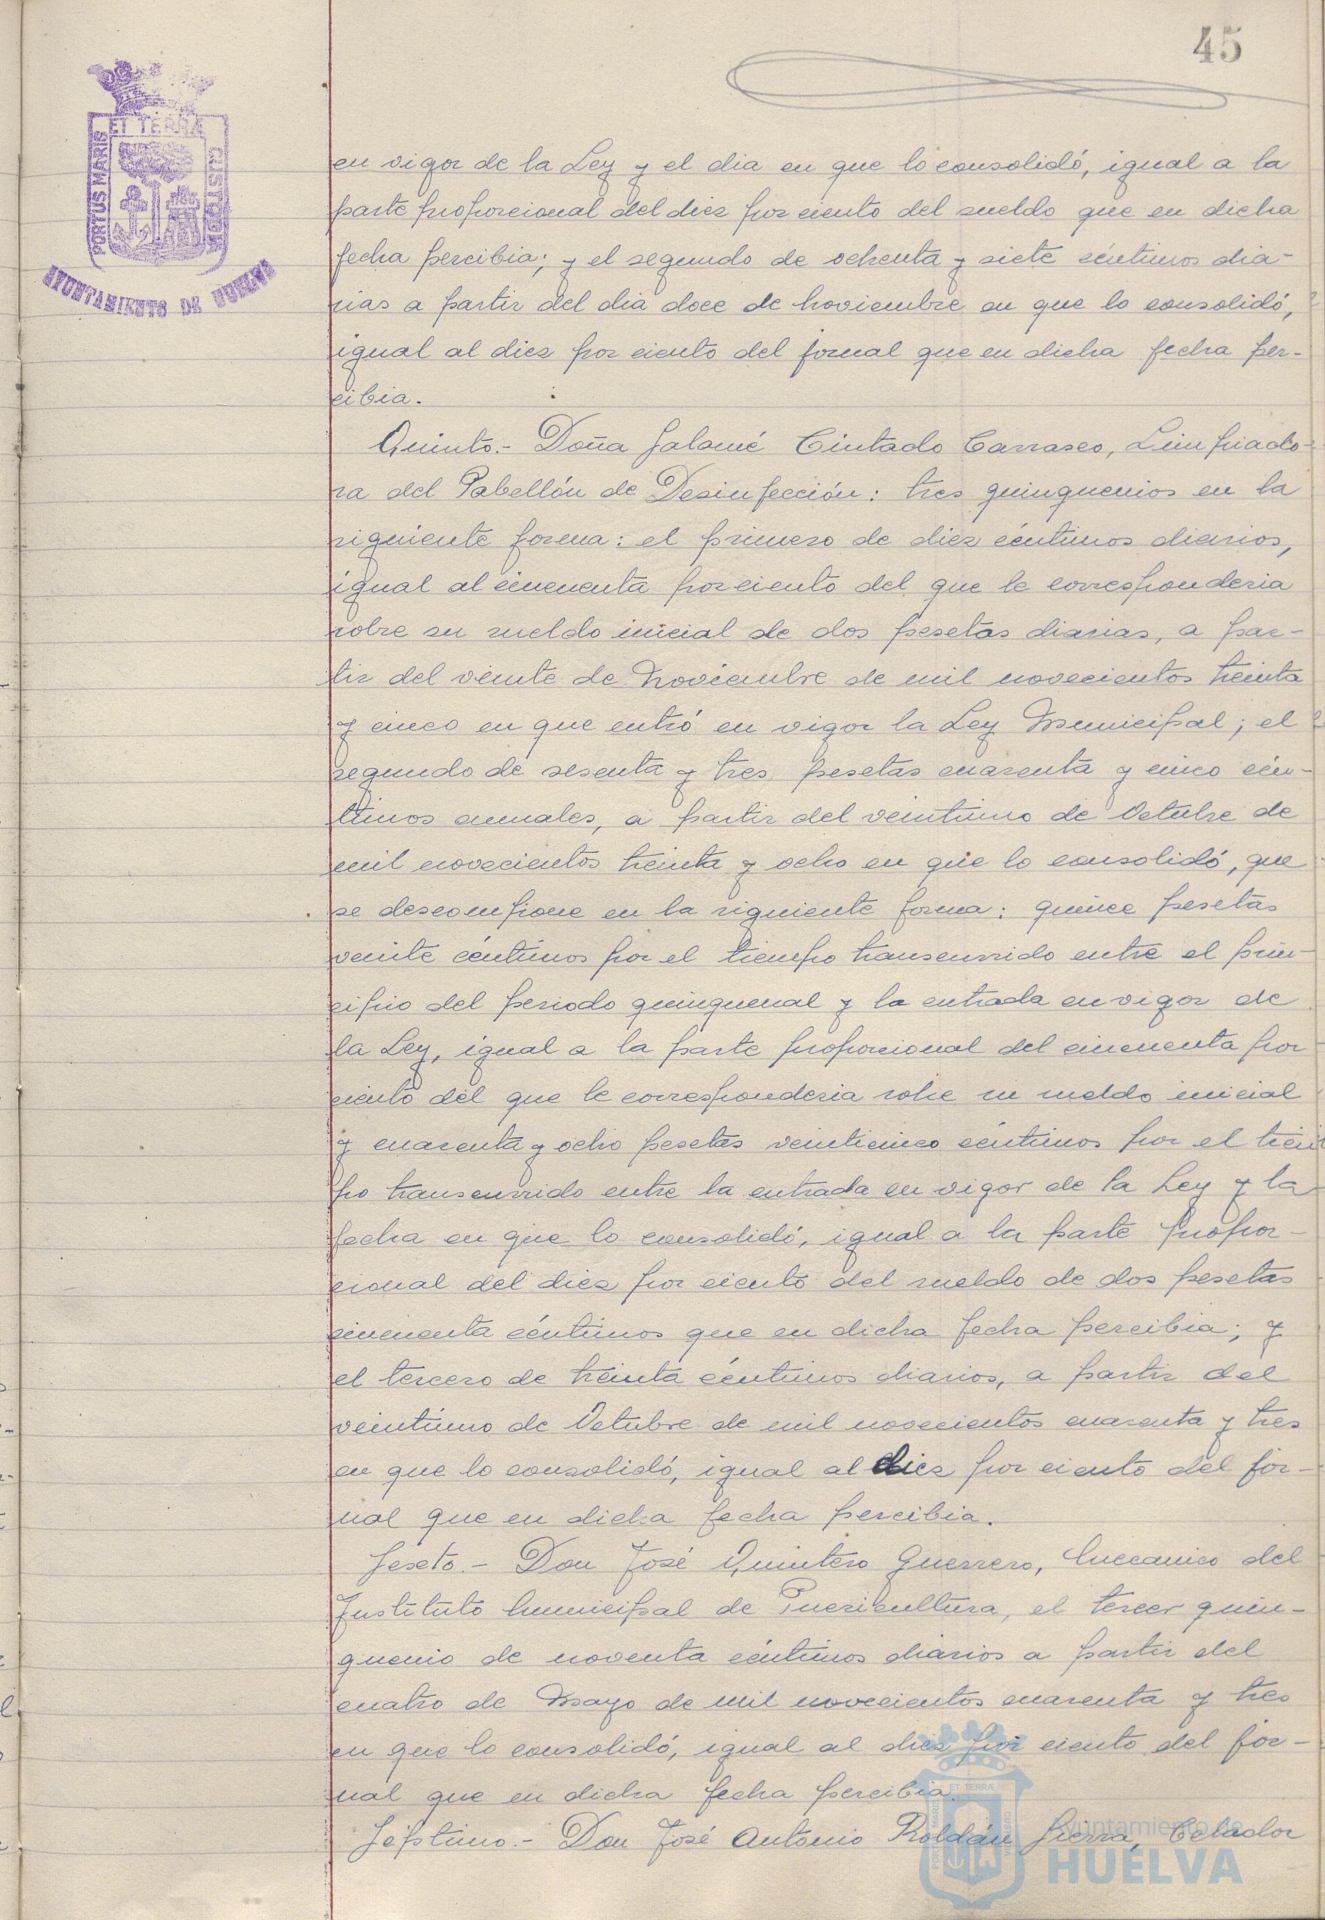 45
PORTUS MARIS ET TERRÆ CUSTODIA
AYUNTAMIENTO DE HUELVA
en vigor de la Ley y el dia en que lo consolidó, igual a la
parte proporcional del diez por ciento del sueldo que en dicha
fecha percibia; y el segundo de ochenta y siete céntimos dia-
rias a partir del dia doce de Noviembre en que lo consolidó,
igual al diez por ciento del jornal que en dicha fecha per-
cibia.
Quinto.- Doña Salomé Cintado Carrasco, Limpiado-
ra del Pabellón de Desinfección: tres quinquenios en la
siguiente forma: el primero de diez céntimos diarios,
igual al cincuenta por ciento del que le corresponderia
sobre su sueldo inicial de dos pesetas diarias, a par-
tir del veinte de Noviembre de mil novecientos treinta
y cinco en que entró en vigor la Ley Municipal; el
segundo de sesenta y tres pesetas cuarenta y cinco cén-
timos anuales, a partir del veintiuno de Octubre de
mil novecientos treinta y ocho en que lo consolidó, que
se descompone en la siguiente forma: quince pesetas
veinte céntimos por el tiempo transcurrido entre el prin-
cipio del periodo quinquenal y la entrada en vigor de
la Ley, igual a la parte proporcional del cincuenta por
ciento del que le corresponderia sobre su sueldo inicial
y cuarenta y ocho pesetas veinticinco céntimos por el tiem
po transcurrido entre la entrada en vigor de la Ley y la
fecha en que lo consolidó, igual a la parte propor-
cional del diez por ciento del sueldo de dos pesetas
cincuenta céntimos que en dicha fecha percibia; y
el tercero de treinta céntimos diarios, a partir del
veintiuno de Octubre de mil novecientos cuarenta y tres
en que lo consolidó, igual al diez por ciento del jor-
nal que en dicha fecha percibia.
Sexto.- Don José Quintero Guerrero, Mecanico del
Instituto Municipal de Puericultura, el tercer quin-
quenio de noventa céntimos diarios a partir del
cuatro de Mayo de mil novecientos cuarenta y tres
en que lo consolidó, igual al diez por ciento del jor-
nal que en dicha fecha percibia.
Séptimo.- Don José Antonio Roldán Sierra, Celador
Ayuntamiento de
HUELVA